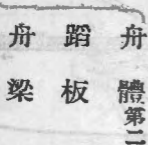 舟體第二
蹈板
舟梁